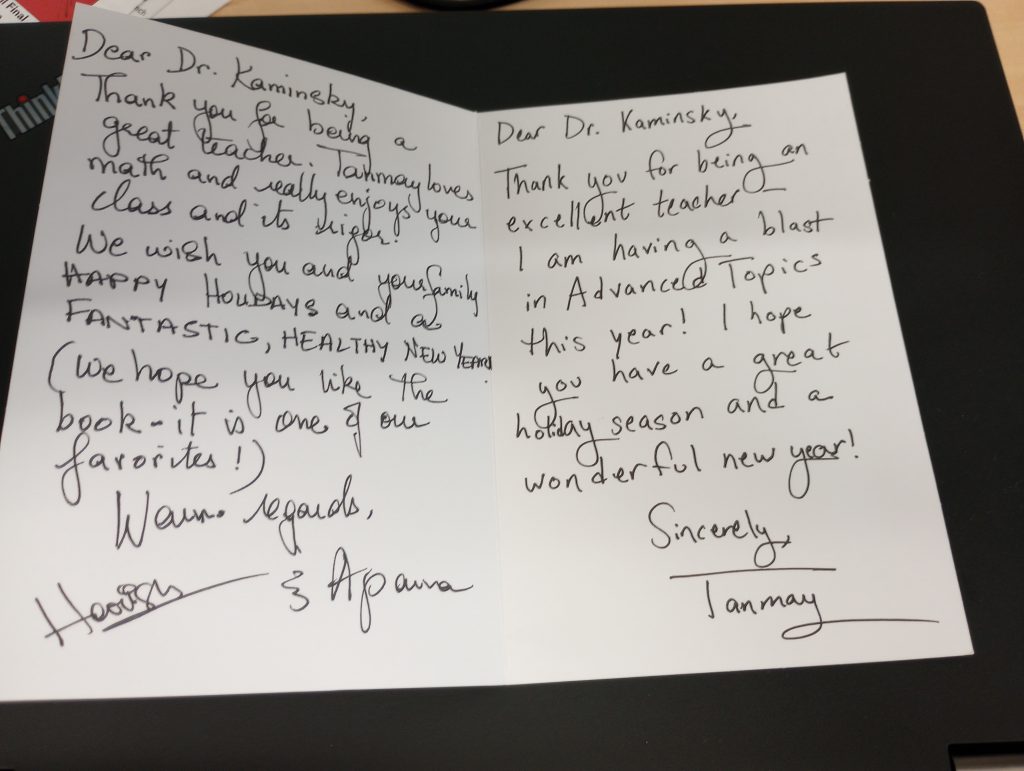 Final
Think
Dear Dr. Kaminsky,
Thank you for being a
great teacher. Tanmay loves
math and really enjoys your
class and its rigor!
We wish you and your family
HAPPY HOLIDAYS and a
FANTASTIC, HEALTHY NEW YEAR!
(We hope you like the
book - it is one of our
favorites!)
Warm regards,
& Aparna
Dear Dr. Kaminsky,
Thank you for being an
excellent teacher
I am having a blast
in Advanced Topics
this year! I hope
you have a great
holiday season and a
wonderful new year!
Sincerely,
Tanmay